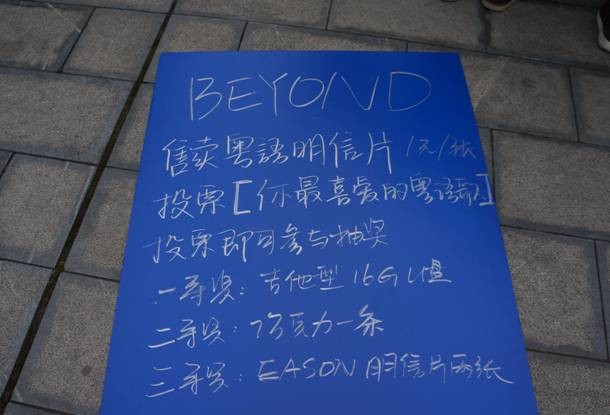 BEYOND
售卖粤語明信片 1元/张
投票[你最喜爱的粤語歌]
投票即可参与抽奖
一等奖:吉他型16G U盘
二等奖:巧克力一条
三等奖:EASON 明信片两张